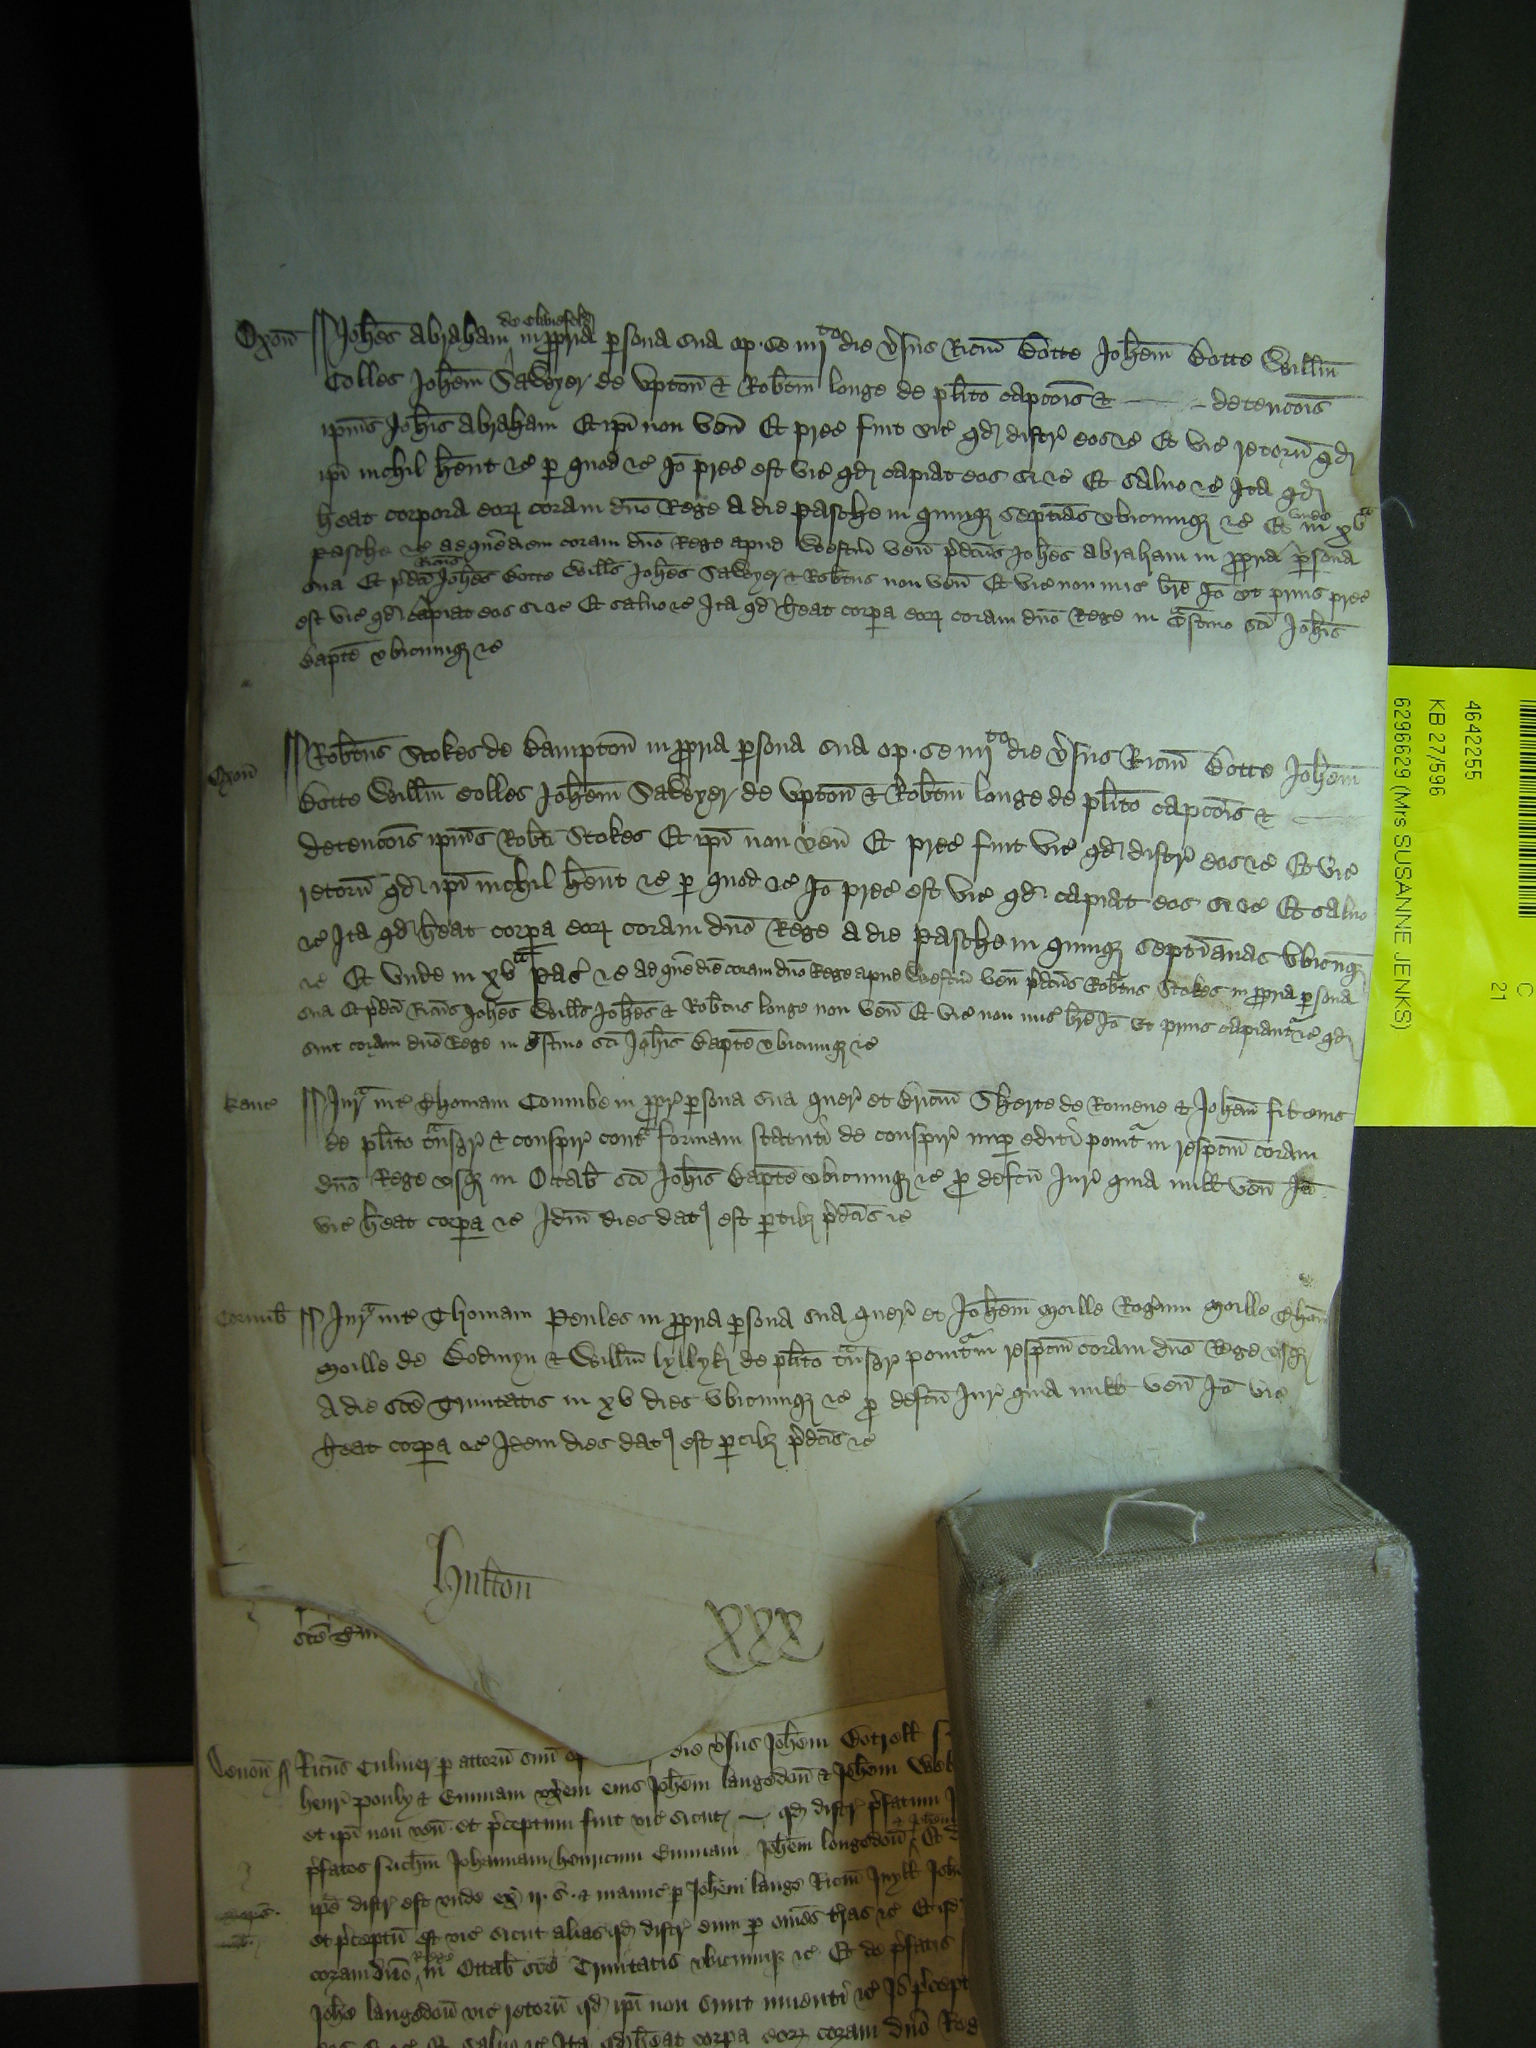 de Glynfeld
Oxon Johes Abraham in ppria psona sua op. se iiijto die vsus Ricm Botte Johem Botte Willm
Colles Johem Sawyer de Upton & Robtm Longe de plito capcois & detencois
ipius Johis Abraham Et ipi non ven Et prec fuit vic qd distr eos &c Et vic retorn qd
ipi nichil hent &c p quod &c Io prec est vic qd capiat eos si &c Et salvo &c Ita qd
heat corpora eor coram dno Rege a die Pasche in quinq septias ubicumq &c Et unde in xva
Pasche &c ad quem diem coram dno Rege apud Westm ven pdcus Johes Abraham in ppria psona
Ricus
sua Et pdci Johes Botte Wills Johes Sawyer & Robtus non ven Et vic non mis bre Io ut prius prec
est vic qd capiat eos si &c Et salvo &c Ita qd heat corpa eor coram dno Rege in Cstino sci Johis
Bapte ubicumq &c
Oxon Robtus Stokes de Bampton in ppria psona sua op. se iiijto die vsus Ricm Botte Johem
Botte Willm Colles Johem Sawyer de Upton & Robtm Longe de plito capcois &
detencois ipius Robti Stokes Et ipi non ven Et prec fuit vic qd distr eos &c Et vic
retorn qd ipi nichil hent &c p quod &c Io prec est vic qd capiat eos si &c Et salvo
&c Ita qd heat corpa eor coram dno Rege a die Pasche in quinq septianas ubicumq
&c Et unde in xv Pasc &c ad quem diem coram dno Rege apud Westm ven pdcus Robtus Stokes in ppria psona
sua Et pdci Ricus Johes Wills Johes & Robtus Longe non ven Et vic non mis bre Io ut prius capiantr &c qd
sint coram dno Rege in Cstino sci Johis Bapte ubicumq &c
Kanc Jura int Thomam Coumbe in ppr psona sua quer et Bricm Sherte de Romene & Johem
de plito tnsgr & conspir contra formam statuti de conspir nup editi ponitr in respcm coram
dno Rege usq in Octab sci Johis Bapte ubicumq &c p defcu Jur quia null ven Io
vic heat corpa &c Idm dies dat est ptibz pdcis &c
Cornub Jura int Thomam Penles in ppria psona sua quer et Johem Moille Rogum Moille Thom
Moille de Bodmyn & Willm Lyllyk de plito tnsgr ponitr in respcm coram dno Rege usq
a die sce Trinitatis in xv dies ubicumq &c p defcu Jur quia null ven Io vic
heat corpa &c Idem dies dat est ptibz pdcis &c
Hulton
XXX
sce Tin
Devon Ricus Culmer p attorn suu op die vsus Johem Botrell
Henr Pouly & Emmam uxem eius Johem Langedon & Johem
et ipi non ven. et pceptum fuit vic sicut qd distr pfatum
pfatos Johannam Henricum Emmam Johem Longedon
ipe distr est unde ex ij. s. & manuc p Johem Lange Ricm
et pceptu est vic sicut alias qd distr eum p omes tras &c Et
Rege
coram dno in Octab sce Trinitatis ubicumq &c Et de pfatis
Johe Langedon vic retorn qd ipi non sunt inventi &c Io pcept
&c Et salvo &c Ita qd heat corpa eor coram dno Reg
4642255
KB 27/596
6296629 (Mrs SUSANNE JENKS)
C
21